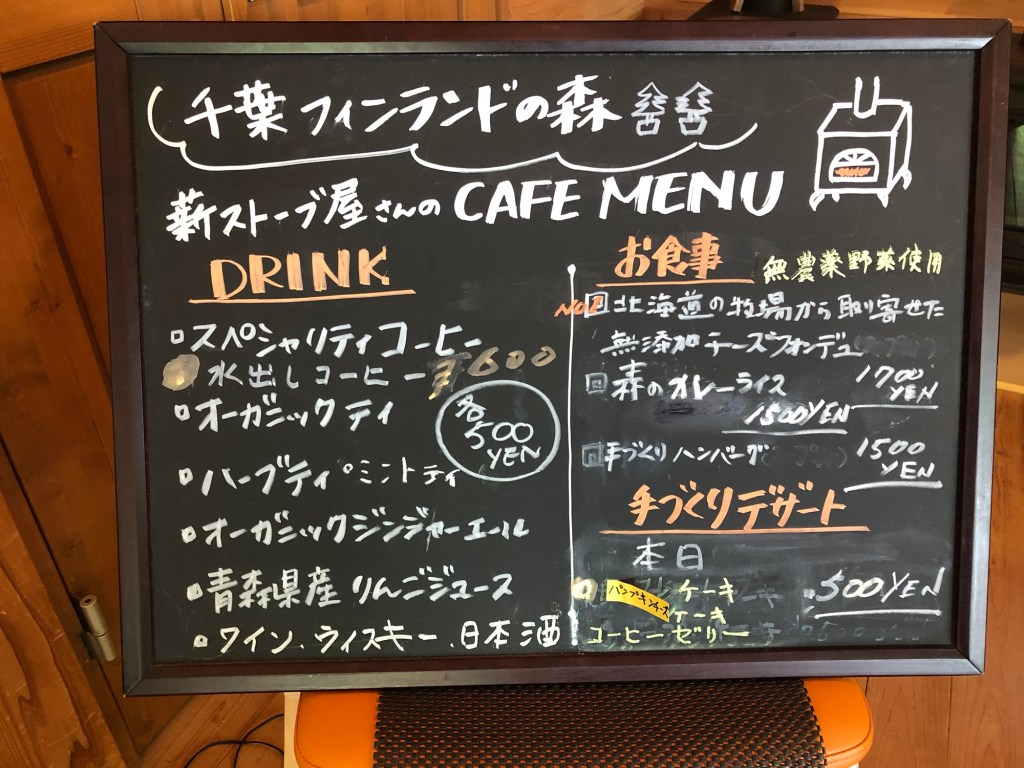 千葉フィンランドの森
薪ストーブ屋さんの CAFE MENU
DRINK
スペシャリティコーヒー
水出しコーヒー ¥600
オーガニックティ
各500YEN
ハーブティ ミントティ
オーガニックジンジャーエール
青森県産 りんごジュース
ワイン、ウィスキー、日本酒
お食事 無農薬野菜使用
NO.1 北海道の牧場から取り寄せた
無添加チーズフォンデュ
1700YEN
森のオレーライス
1500YEN
手づくりハンバーグ 1500YEN
手づくりデザート
本日
パンプキンチーズ ケーキ 500YEN
ケーキ
コーヒーゼリー